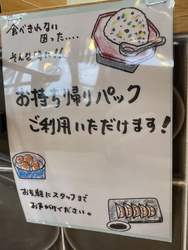 食べきれない
困った....
そんな時に!!
お持ち帰りパック
ご利用いただけます!
お気軽にスタッフまで
お声がけください。